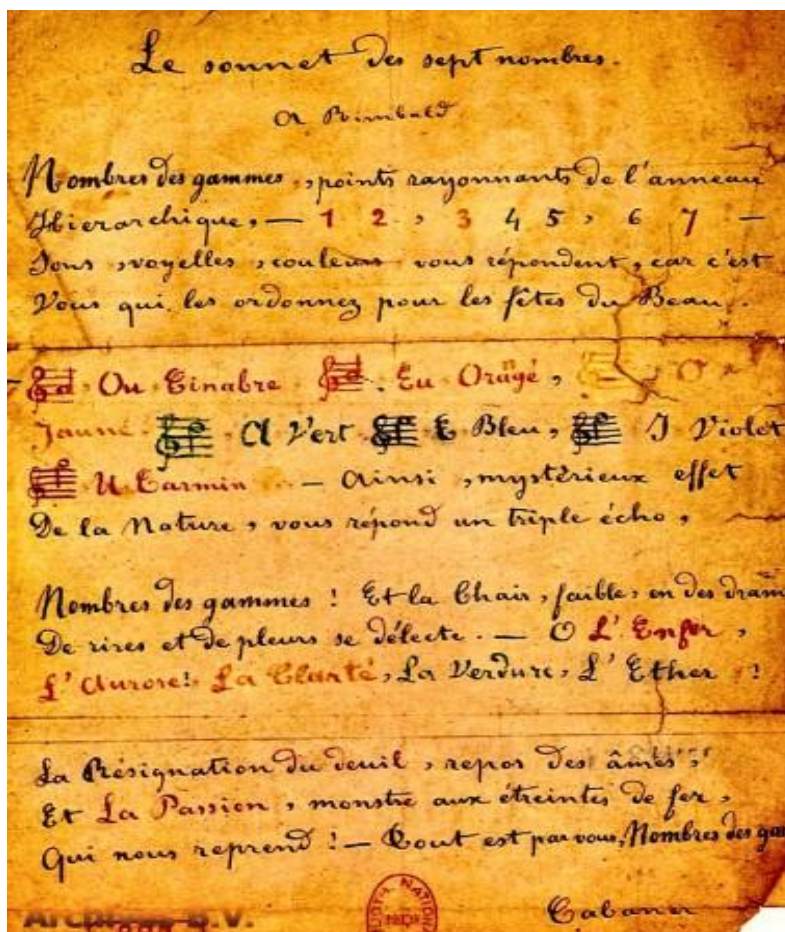 Le sonnet des sept nombres.
A Rimbald
Nombres des gammes, points rayonnants de l'anneau
Hierarchique, — 1 2, 3 4 5, 6 7 —
Sons, voyelles, couleurs vous répondent, car c'est
Vous qui les ordonnez pour les fêtes du Beau.
Ou Cinabre Eu Orangé, O
Jaune A Vert E Bleu, I Violet
U Carmin — Ainsi, mystérieux effet
De la Nature, vous répond un triple écho,
Nombres des gammes ! Et la Chair, faible, en des dram
De rires et de pleurs se délecte. — O L'Enfer,
L'Aurore! La Clarté, La Verdure, L'Ether !
La Résignation du deuil, repos des âmes,
Et La Passion, monstre aux étreintes de fer,
Qui nous reprend ! — Tout est par vous, Nombres des ga
Cabaner